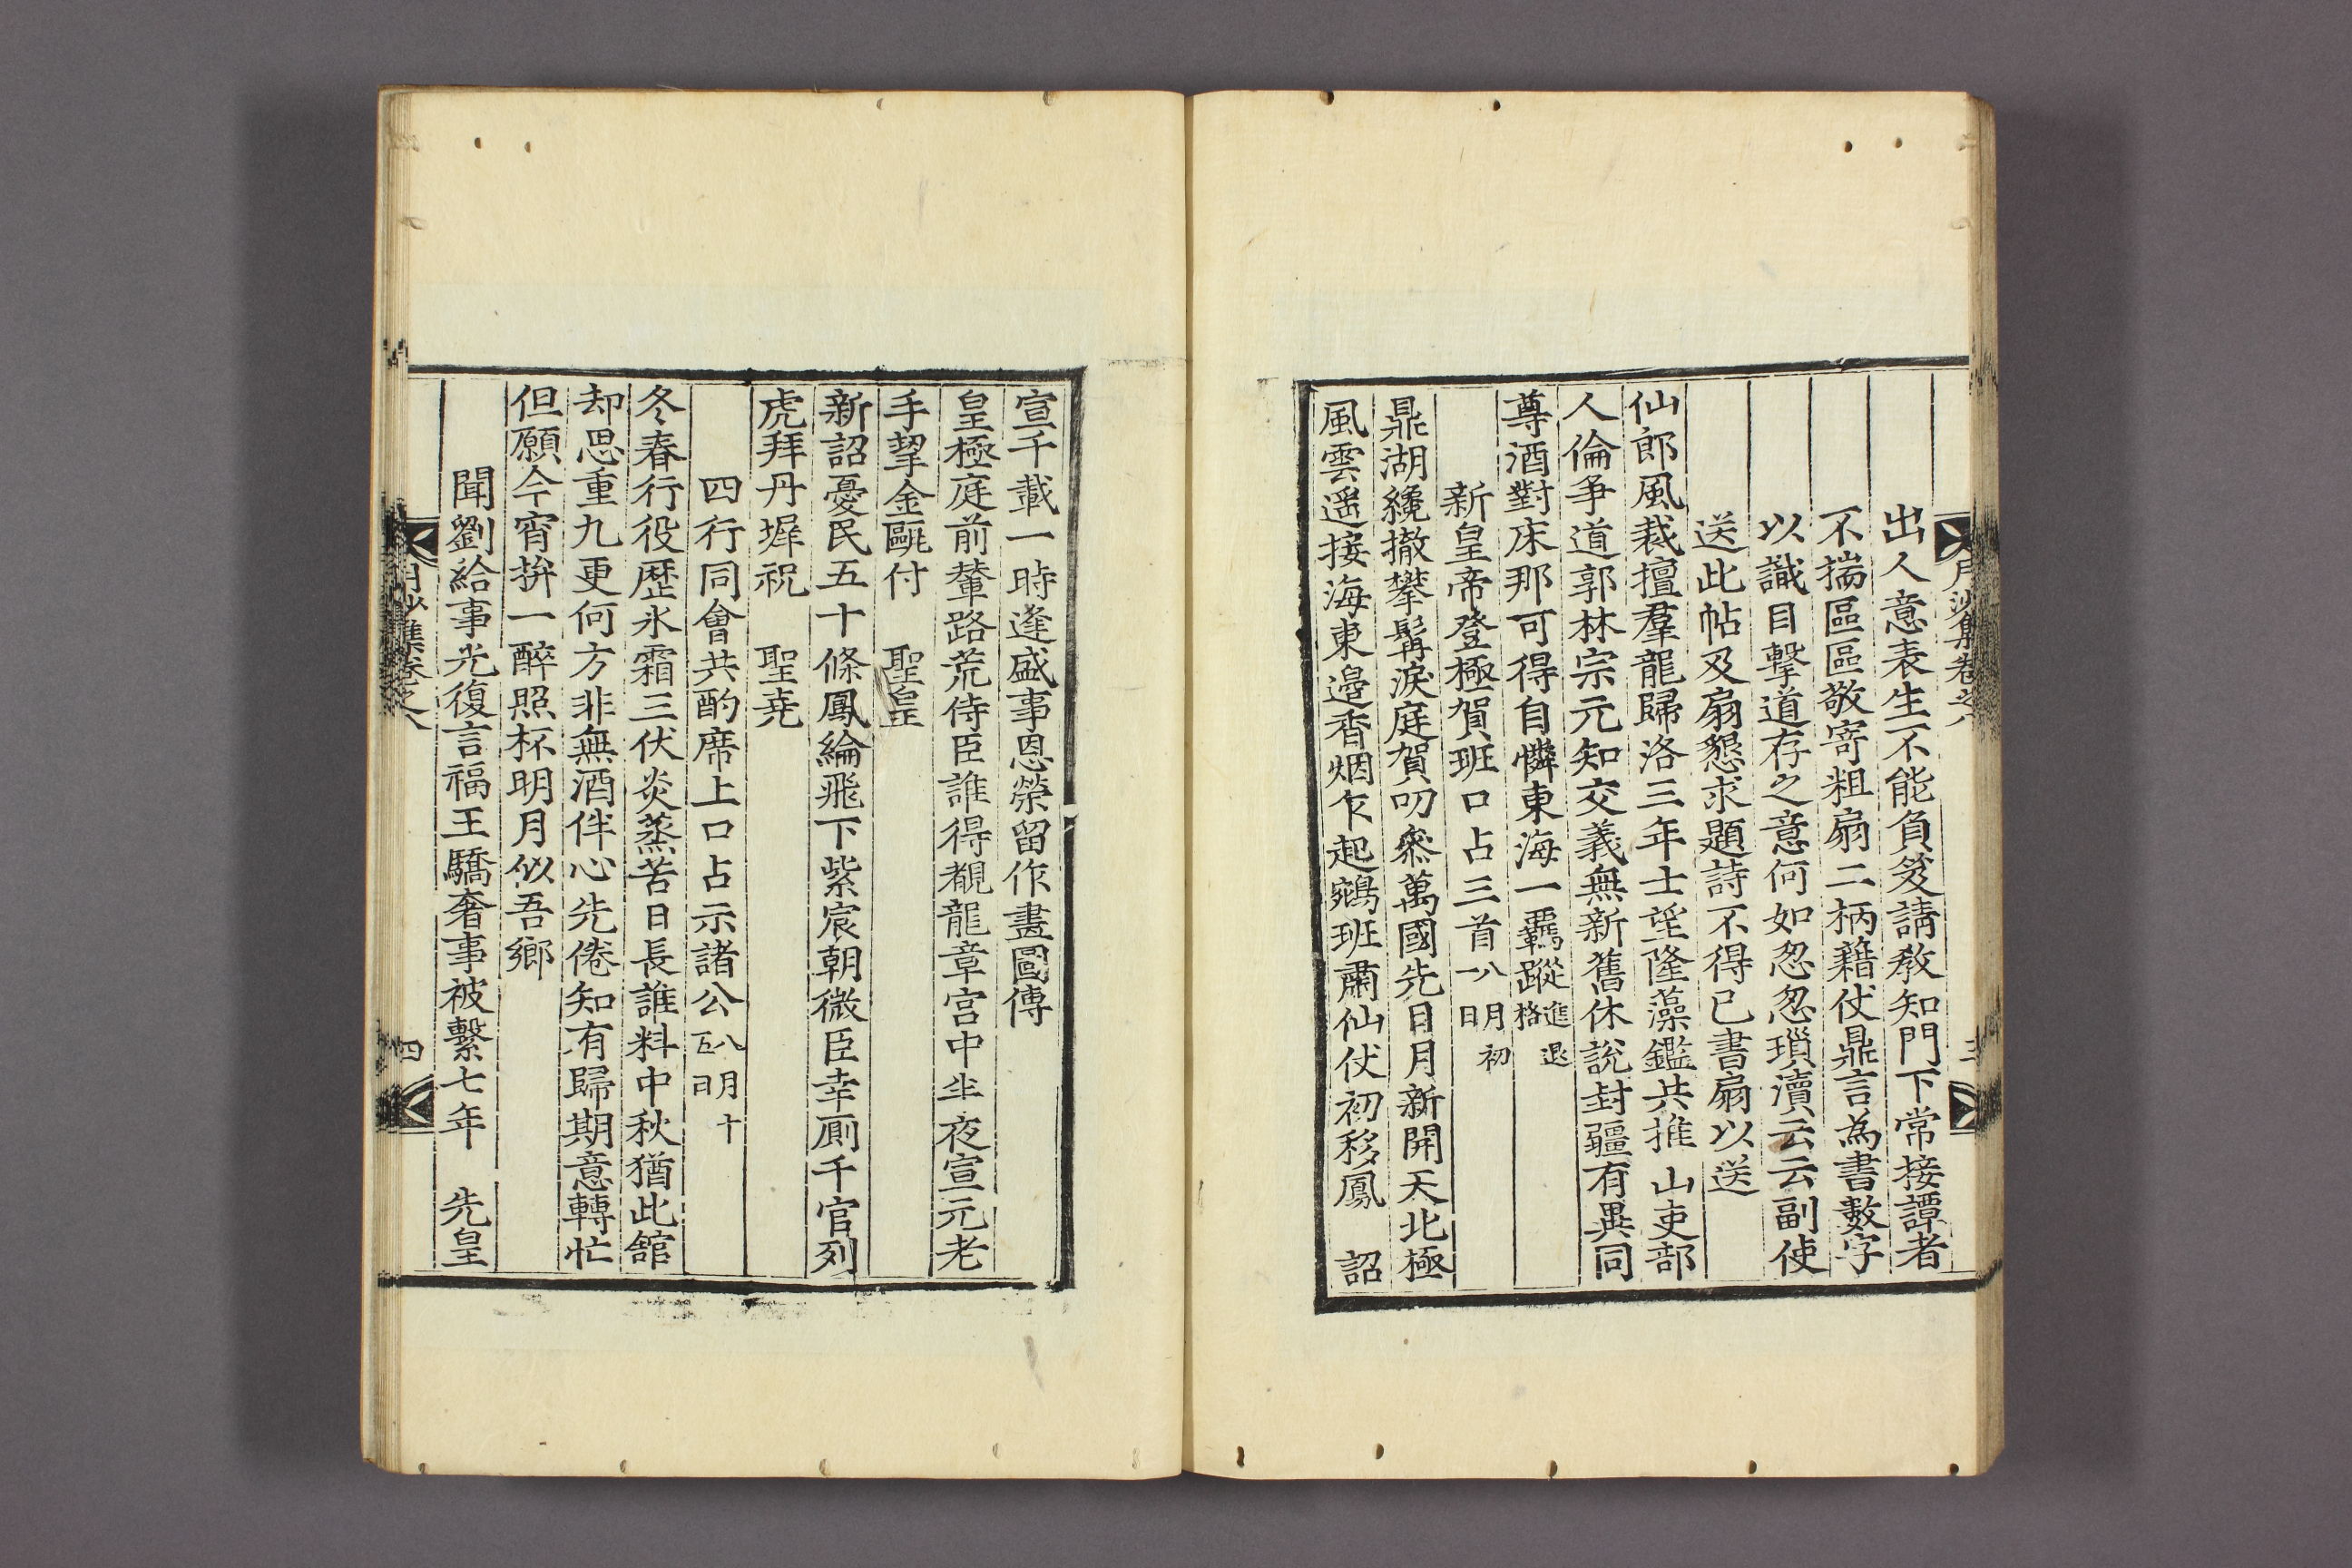 月沙集卷之八
三
出人意表生不能負笈請教知門下常接譚者
不揣區區敬寄粗扇二柄藉仗鼎言為書數字
以識目擊道存之意何如忽忽瑣瀆云云副使
送此帖及扇懇求題詩不得已書扇以送
仙郎風裁擅羣龍歸洛三年士望隆藻鑑共推 山吏部
人倫爭道郭林宗元知交義無新舊休說封疆有異同
尊酒對床那可得自憐東海一覊蹤進退格
新皇帝登極賀班口占三首八月初一日
鼎湖纔撤攀髯淚庭賀叨叅萬國先日月新開天北極
風雲遥接海東邉香烟乍起鵷班肅仙仗初移鳳 詔
宣千載一時逢盛事恩榮留作畫圖傳
皇極庭前輦路荒侍臣誰得覩龍章宮中半夜宣元老
手挈金甌付 聖皇
新詔憂民五十條鳳綸飛下紫宸朝微臣幸厠千官列
虎拜丹墀祝 聖堯
四行同會共酌席上口占示諸公八月十五日
冬春行役歷氷霜三伏炎蒸苦日長誰料中秋猶此舘
却思重九更何方非無酒伴心先倦知有歸期意轉忙
但願今宵拚一醉照杯明月似吾鄉
聞劉給事光復言福王驕奢事被繫七年 先皇
月沙集卷之八
四